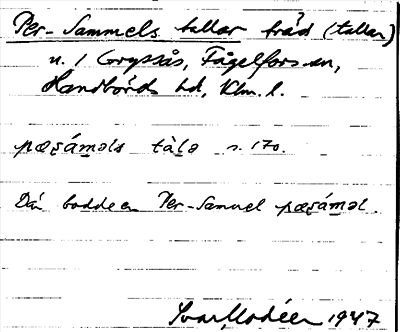 Per-Sammels tallar träd (tallar)
u. / Gryssås, Fågelfors sn,
Handbörds hd, Klm. l.
pærsáməls tàla s. 170.
Där bodde en Per-Samuel pærsáməl.
Ivar Modéer 1947